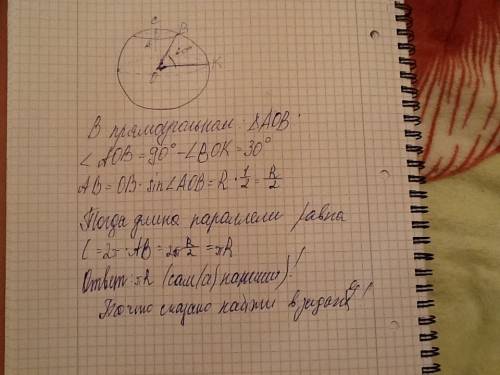 C
B
A
60°
O
K
В прямоугольном ΔAOB
∠AOB = 90° - ∠BOK = 30°
AB = OB · sin∠AOB = R · 1/2 = R/2
Тогда длина параллели равна
C = 2π · AB = 2π R/2 = πR
Ответ: πR (сам(а) напиши)!
Точно сказано найти в задаче!